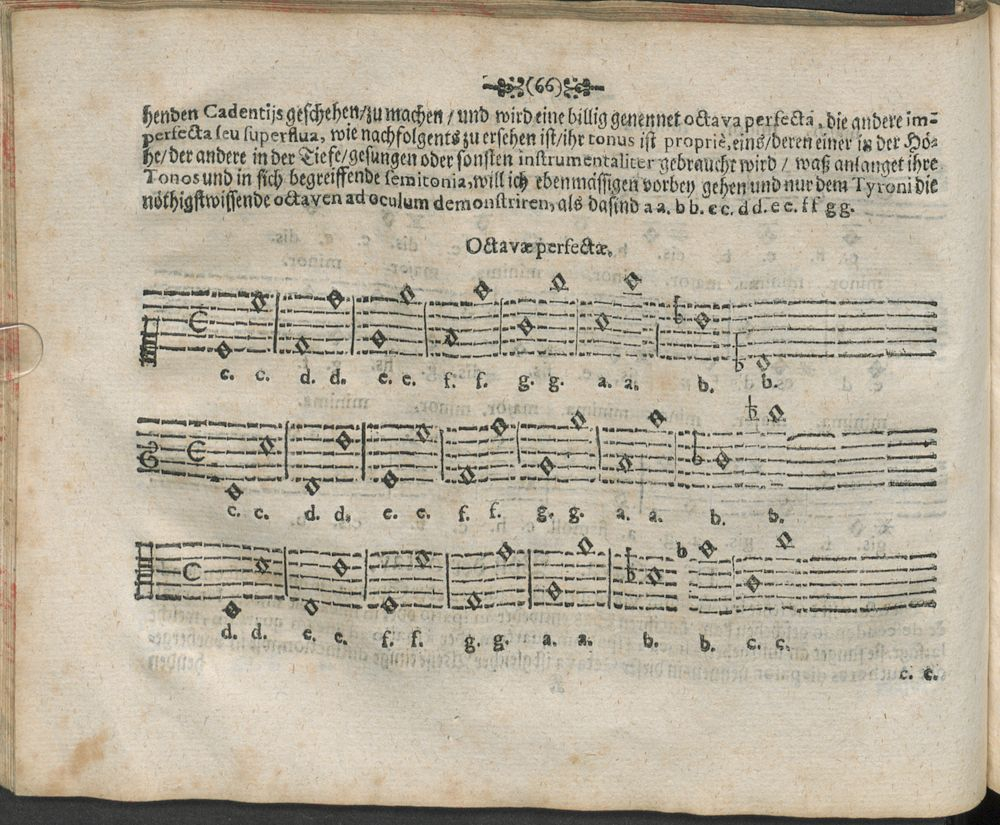 (66)
henden Cadentijs geschehen/zu machen / und wird eine billig genennet octava perfecta, die andere im-
perfecta seu superflua, wie nachfolgents zu ersehen ist/ihr tonus ist propriè, eins/deren einer in der Hö-
he/der andere in der Tiefe/gesungen oder sonsten instrumentaliter gebraucht wird / waß anlanget ihre
Tonos und in sich begreiffende semitonia, will ich ebenmässigen vorbey gehen und nur dem Tyroni die
nöthigst wissende octaven ad oculum demonstriren, als da sind a a. b b. c c. d d. e e. f f g g.
Octavæ perfectæ.
c. c. d. d. e. e. f. f. g. g. a. a. b. b.
c. c. d. d. e. e. f. f. g. g. a. a. b. b.
d. d. e. e. f. f. g. g. a. a. b. b. c. c.
c. c.